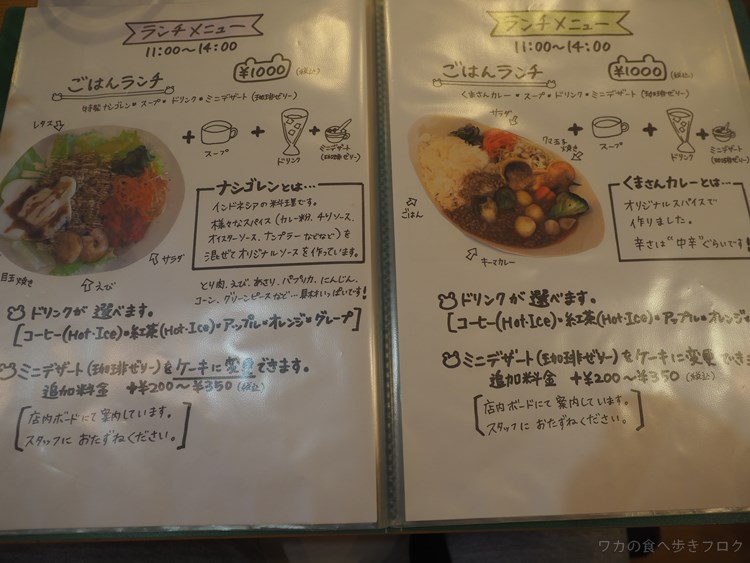 ランチメニュー
11:00〜14:00
ごはんランチ
¥1000 (税込)
特製ナシゴレン・スープ・ドリンク・ミニデザート(珈琲ゼリー)
レタス
+ + +
スープ
ドリンク
ミニデザート
(珈琲ゼリー)
目玉焼き
えび
サラダ
ナシゴレンとは…
インドネシアの料理です。
様々なスパイス(カレー粉、チリソース、
オイスターソース、ナンプラーなどなど)を
混ぜてオリジナルソースを作っています。
とり肉、えび、あさり、パプリカ、にんじん、
コーン、グリーンピースなど…具材いっぱいです!
ドリンクが選べます。
[コーヒー(Hot・Ice)・紅茶(Hot・Ice)・アップル・オレンジ・グレープ]
ミニデザート(珈琲ゼリー)をケーキに変更できます。
追加料金 +¥200〜¥350(税込)
店内ボードにて案内しています。
スタッフにおたずねください。
ランチメニュー
11:00〜14:00
ごはんランチ
¥1000 (税込)
くまさんカレー・スープ・ドリンク・ミニデザート(珈琲ゼリー)
サラダ
+ + +
スープ
ドリンク
ミニデザート
(珈琲ゼリー)
ごはん
キーマカレー
くまさんカレーとは…
オリジナルスパイスで
作りました。
辛さは"中辛"ぐらいです!
ドリンクが選べます。
[コーヒー(Hot・Ice)・紅茶(Hot・Ice)・アップル・オレンジ・
ミニデザート(珈琲ゼリー)をケーキに変更でき
追加料金 +¥200〜¥350(税込)
店内ボードにて案内しています。
スタッフにおたずねください。
ワカの食べ歩きブログ